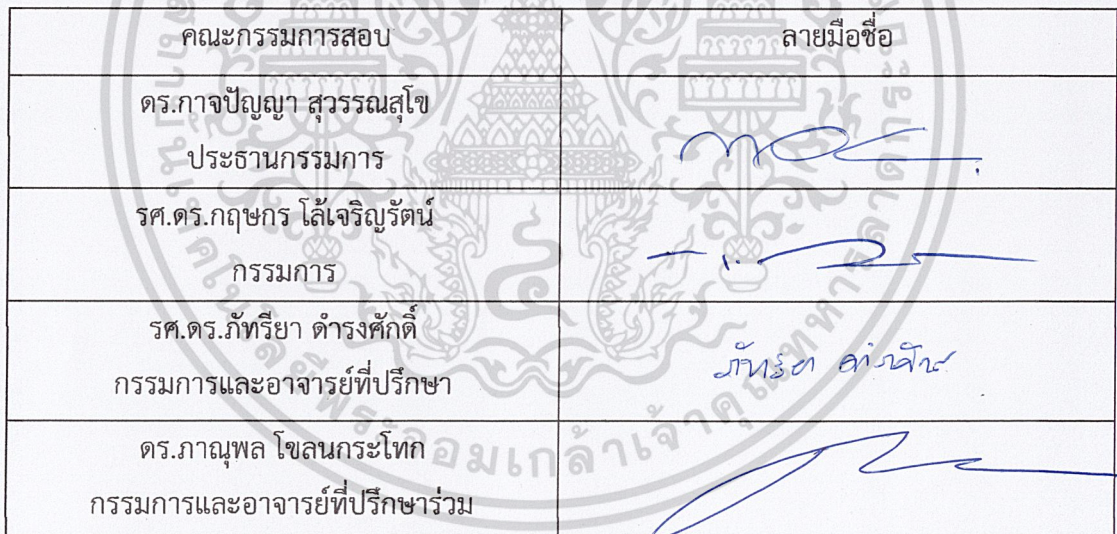 คณะกรรมการสอบ ลายมือชื่อ
ดร.กาจปัญญา สุวรรณสุโข
ประธานกรรมการ
รศ.ดร.กฤษกร โล้เจริญรัตน์
กรรมการ
รศ.ดร.ภัทรียา ดำรงศักดิ์
กรรมการและอาจารย์ที่ปรึกษา
ภัทรียา ดำรงศักดิ์
ดร.ภาณุพล โขลนกระโทก
กรรมการและอาจารย์ที่ปรึกษาร่วม
พระจอมเกล้าเจ้าคุณทหารลาดกระบัง